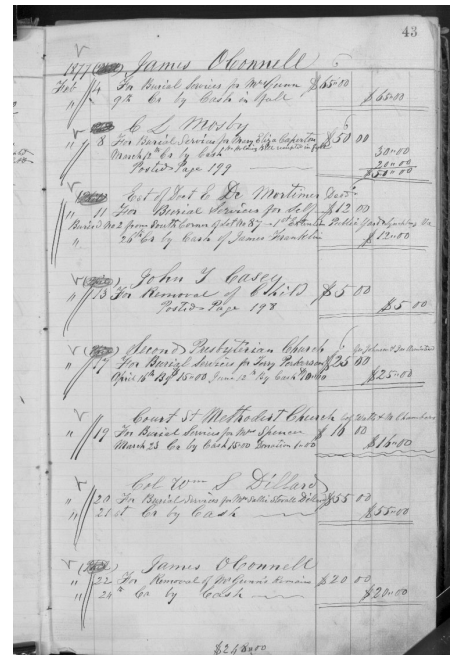 43
1877 James OConnell
Feb 4 For Burial Services for Mr Gunn $65.00
" 9th Cr By Cash in full $65.00
C L Mosby
" 8 For Burial Services for Mary Eliza Caperton $50 00
March 12 Cr by Cash 30.00
20.00
Posted Page 199 $50.00
Est of Doct E De Mortimer Decd
" 11 For Burial Services for Self $12 00
Buried No 2 from South Corner of Lot No 87 1st Extension Public Yard Lynchburg Va
" 26th Cr by Cash of James Franklin $12.00
John T Casey
" 13 For Removal of Child $5 00
Posted Page 198 $5 00
Second Presbyterian Church
" 17 For Burial Services for $25 00
April 16th By 15.00 June 12th By Cash 10.00 $25.00
Court St Methodist Church
" 19 For Burial Services for Mrs Spencer $16 00
March 23 Cr by Cash 15.00 Donation 1.00 $16.00
Col Wm S Dillard
" 20 For Burial Services for Mrs Sallie Stovall Dillard $55 00
" 20st Cr by Cash $55.00
James OConnell
" 22 For Removal of Mr Gunn's Remains $20 00
" 24th Cr by Cash $20.00
$248.00